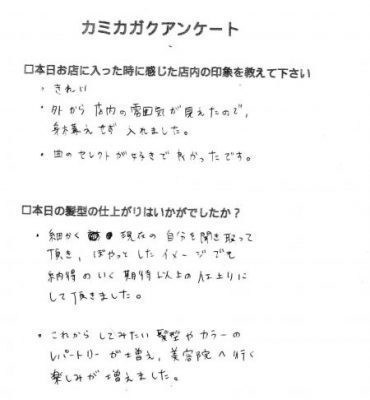 カミカガクアンケート
□本日お店に入った時に感じた店内の印象を教えて下さい
・きれい
・外から店内の雰囲気が見えたので、
身構えせず入れました。
・曲のセレクトが好きで良かったです。
□本日の髪型の仕上がりはいかがでしたか？
・細かく現在の自分を聞き取って
頂き、ぼやっとしたイメージでも
納得のいく期待以上の仕上りに
して頂きました。
・これからしてみたい髪型やカラーの
レパートリーが増え、美容院へ行く
楽しみが増えました。